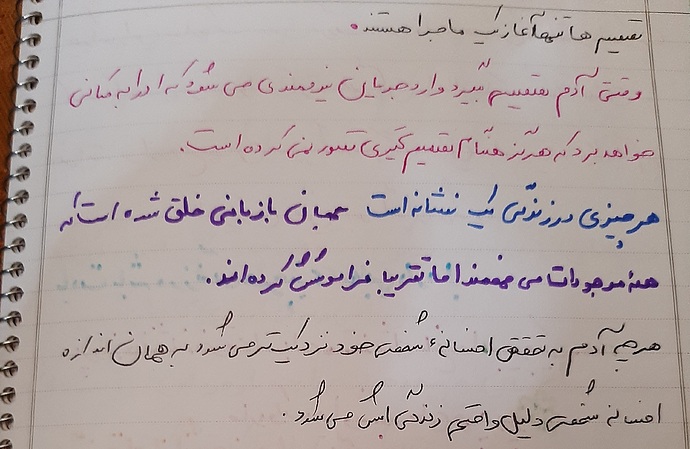 تصمیم ها تنها آغاز یک ماجرا هستند.
وقتی آدم تصمیم بگیرد وارد جریان نیرومندی می شود که او را به مکانی
خواهد برد که هرگز هنگام تصمیم گیری تصور نمی کرده است.
هر چیزی در زندگی یک نشانه است جهان با زبانی خلق شده است که
همهٔ موجودات می فهمند اما تقریبا فراموش کرده اند.
هر چه آدم به تحقق افسانهٔ شخصی خود نزدیک تر می شود به همان اندازه
افسانه شخصی دلیل واقعی زندگی اش می شود.